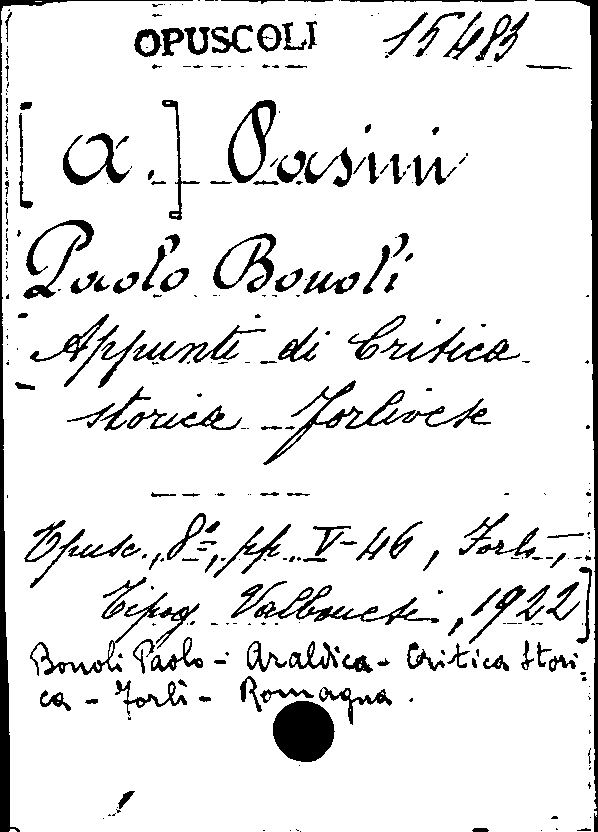 OPUSCOLI 15483
[A.] Pasini
Paolo Bonoli
Appunti di Critica
storica Forlivese
Opusc., 8º, pp. V-46, Forlì,
Tipog. Valbonesi, 1922]
Bonoli Paolo - Araldica - Critica Stori-
ca - Forlì - Romagna.